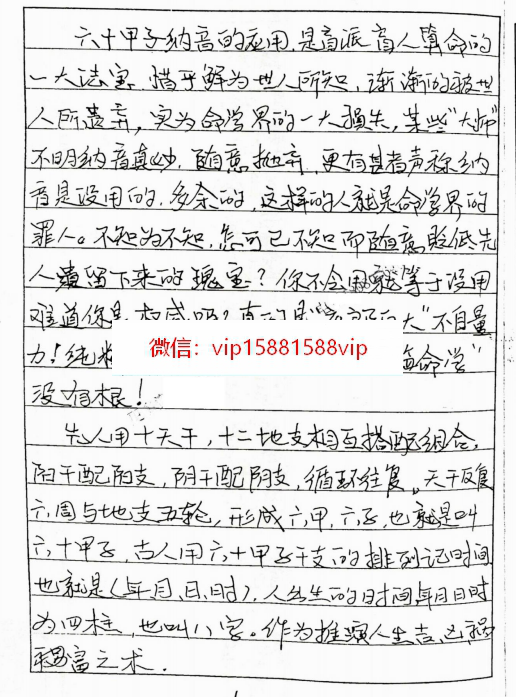 六十甲子纳音的应用,是盲派盲人算命的
一大法宝.惜乎鲜为世人所知,渐渐的被世
人所遗弃,实为命学界的一大损失,某些“大师”
不明纳音真妙.随意抛弃,更有甚者声称纳
音是没用的,多余的,这样的人就是命学界的
罪人。不知为不知,怎可己不知而随意贬低先
人遗留下来的瑰宝?你不会用就等于没用
难道你是权威吗?真的是 大“不自量
力!纯粹 算命学”
微信:vip15881588vip
没有根!
先人用十天干,十二地支相互搭配组合,
阳干配阳支,阴干配阴支,循环往复。天干反复
六周与地支五轮,形成六甲,六子,也就是叫
六十甲子,古人用六十甲子干支的排列记时间
也就是(年、月、日、时),人出生的日时间年月日时
为四柱,也叫八字。作为推演人生吉凶祸
福富之术.